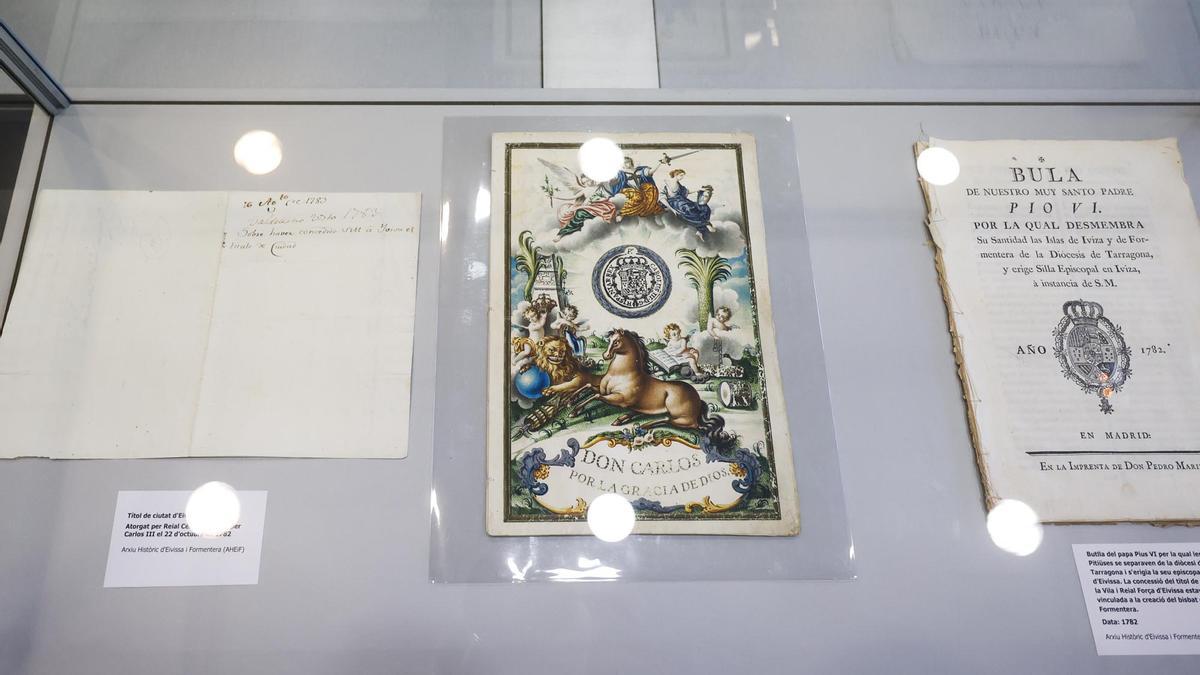 1783
Sobre haver concedido S.M. à Iviza el
titulo de Ciudad
Títol de ciutat
Atorgat per Reial per
Carlos III el 22 d'octubre 1782
Arxiu Històric d'Eivissa i Formentera (AHEiF)
DON CARLOS
POR LA GRACIA DE DIOS
BULA
DE NUESTRO MUY SANTO PADRE
PIO VI.
POR LA QUAL DESMEMBRA
Su Santidad las Islas de Iviza y de For-
mentera de la Diócesis de Tarragona,
y erige Silla Episcopal en Iviza,
à instancia de S.M.
AÑO 1782.
EN MADRID:
EN LA IMPRENTA DE DON PEDRO
Butlla del papa Pius VI per la qual
Pitiüses se separaven de la diòcesi
Tarragona i s'erigia la seu episcopal
d'Eivissa. La concessió del títol de
la Vila i Reial Força d'Eivissa
vinculada a la creació del bisbat
Formentera.
Data: 1782
Arxiu Històric d'Eivissa i